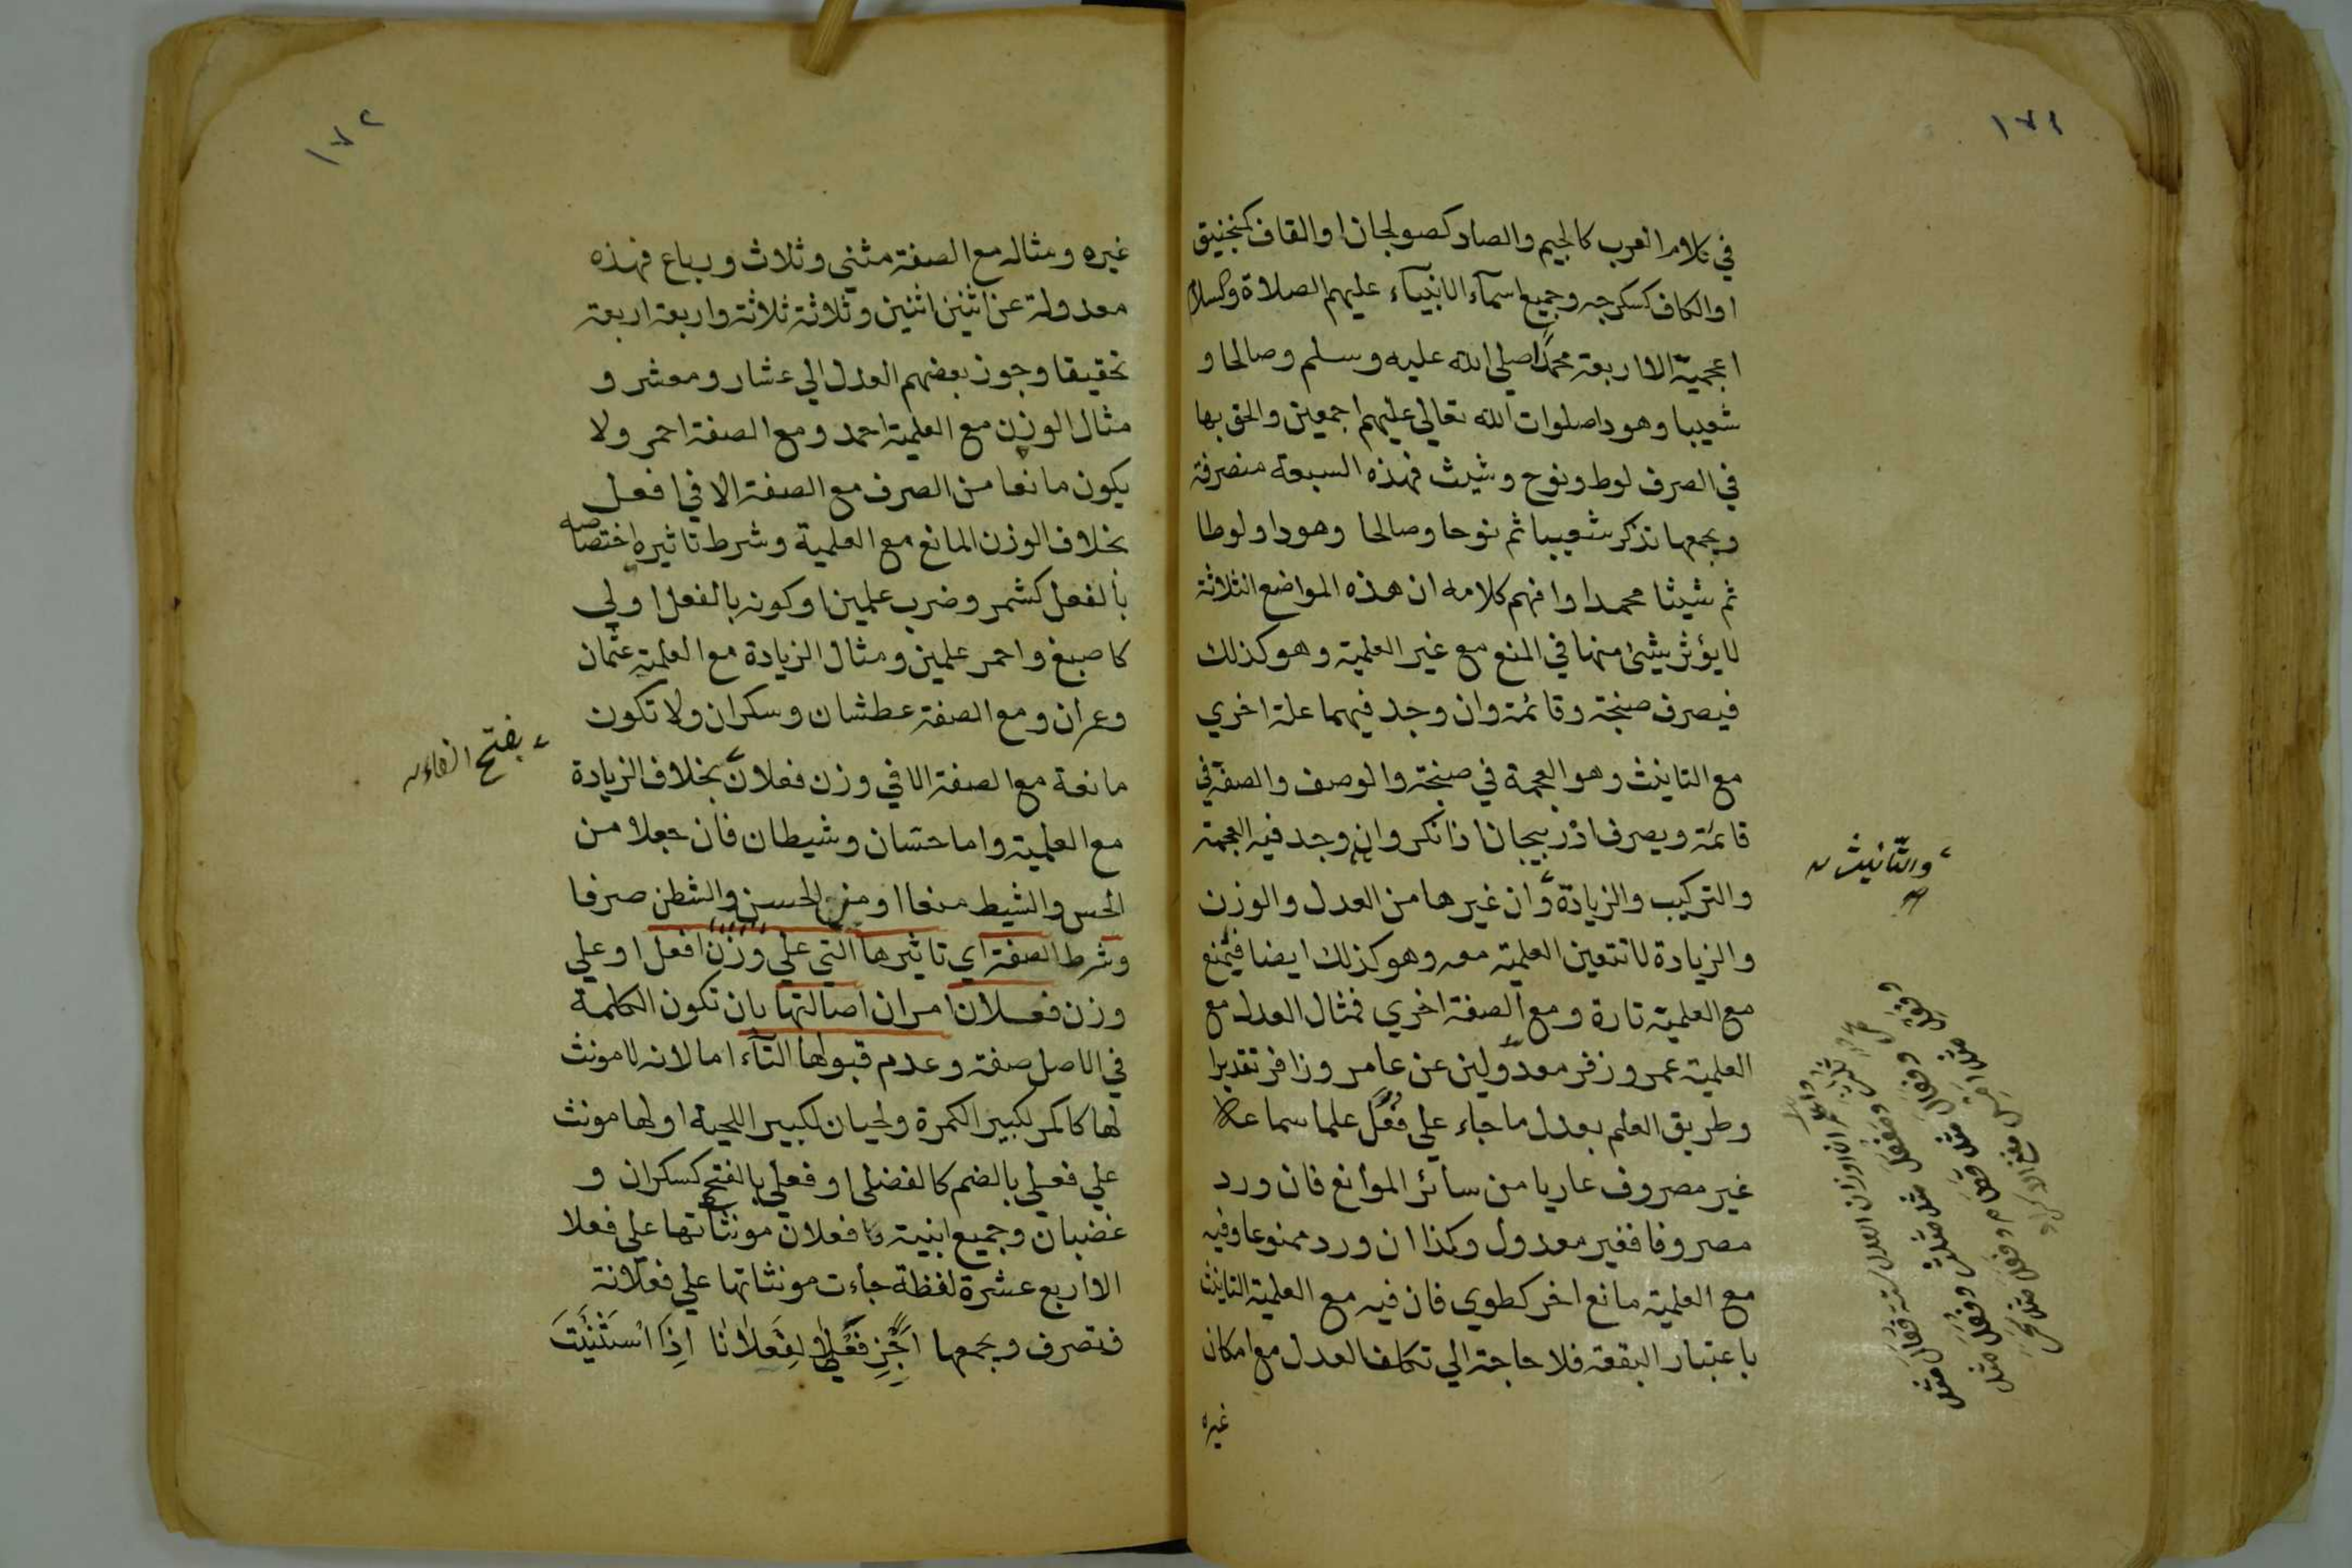 ١٧١
في كلام العرب كالجيم والصاد كصولجان او القاف كمنجنيق
او الكاف كسكرجه وجميع اسمآء الانبيآء عليهم الصلاة والسلام
اعجمية الا اربعة محمدا صلي الله عليه وسلم وصالحا و
شعيبا وهودا صلوات الله تعالي عليهم اجمعين والحق بها
في الصرف لوط ونوح وشيث فهذه السبعة منصرفة
ويجمعها تذكر شعيبا ثم نوحا وصالحا وهودا ولوطا
ثم شيثا محمدا وافهم كلامه ان هذه المواضع الثلاثة
لا يؤثر شيئ منها في المنع مع غير العلمية وهو كذلك
فيصرف صنجة وقائمة وان وجد فيهما علة اخري
مع التانيث وهو العجمة في صنجة والوصف والصفة في
قائمة ويصرف اذربيجان اذا نكر وان وجد فيه العجمة
والتركيب والزيادة وان غيرها من العدل والوزن
والزيادة لا تتعين العلمية معه وهو كذلك ايضا فيمنع
مع العلمية تارة ومع الصفة اخري فمثال العدل مع
العلمية عمر وزفر معدولين عن عامر وزافر تقديرا
وطريق العلم بعدل ما جاء علي فُعَل علما سماعه
غير مصروف عاريا من سائر الموانع فان ورد
مصروفا فغير معدول وكذا ان ورد ممنوعا وفيه
مع العلمية مانع اخر كطوي فان فيه مع العلمية التانيث
باعتبار البقعة فلا حاجة الي تكلف العدل مع امكان
غيره
والتّأنيث
ان اوزان العدل ستة فُعَال مثل
ثلاث ومَفعَل مثل مثلث وفُعَل مثل
وفَعَالِ مثل قطام وفَعَل مثل سَحَر
١٧٢
غيره ومثاله مع الصفة مثني وثلاث ورباع فهذه
معدولة عن اثنين اثنين وثلاثة ثلاثة واربعة اربعة
تحقيقا وجوز بعضهم العدل الي عشار ومعشر و
مثال الوزن مع العلمية احمد ومع الصفة احمر ولا
يكون مانعا من الصرف مع الصفة الا في افعل
بخلاف الوزن المانع مع العلمية وشرط تاثيره اختصاصه
بالفعل كشمر وضرب علمين او كونه بالفعل اولي
كاصبغ واحمر علمين ومثال الزيادة مع العلمية عثمان
وعمران ومع الصفة عطشان وسكران ولا تكون
مانعة مع الصفة الا في وزن فعلان بخلاف الزيادة
مع العلمية واما حسّان وشيطان فان جعلا من
الحس والشيط منعا او من الحسن والشطن صرفا
وشرط الصفة اي تاثيرها التي علي وزن افعل او علي
وزن فعلان امران اصالتها بان تكون الكلمة
في الاصل صفة وعدم قبولها التآء اما لانه لا مونث
لها كاكمر لكبير الكمرة ولحيان لكبير اللحية او لها مونث
علي فعلي بالضم كالفضلي او فعلي بالفتح كسكران و
غضبان وجميع ابنية فعلان مونثاتها علي فعلا
الا اربع عشرة لفظة جاءت مونثاتها علي فعلانة
فتصرف ويجمعها اَجِّزْ فَعْلٰي لِفَعْلَانًا اِذَا اسْتَثْنَيْتَ
بفتح الفاء